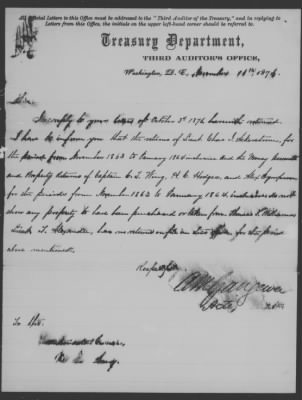 All Official Letters to this Office must be addressed to the "Third Auditor of the Treasury," and in replying to
Letters from this Office, the initials on the upper left-hand corner should be referred to.
Treasury Department,
THIRD AUDITOR'S OFFICE,
Washington, D. C., November 11th 1876.
Sir
In reply to your letter of October 3d 1876 herewith returned
I have to inform you that the returns of Lieut Chas. I.
the period from November 1863 to January 1864 inclusive and the Money Accounts
and Property Returns of Captains C. T. Wing, H. C. Hodges, and
for the periods from November 1862 to January 1864, inclusive do not
show any property to have been purchased or taken from Thomas
Lieut T. Alexander, has no returns on file in this office for the period
above mentioned.
Respectfully
Acting
To
U. S. Army.